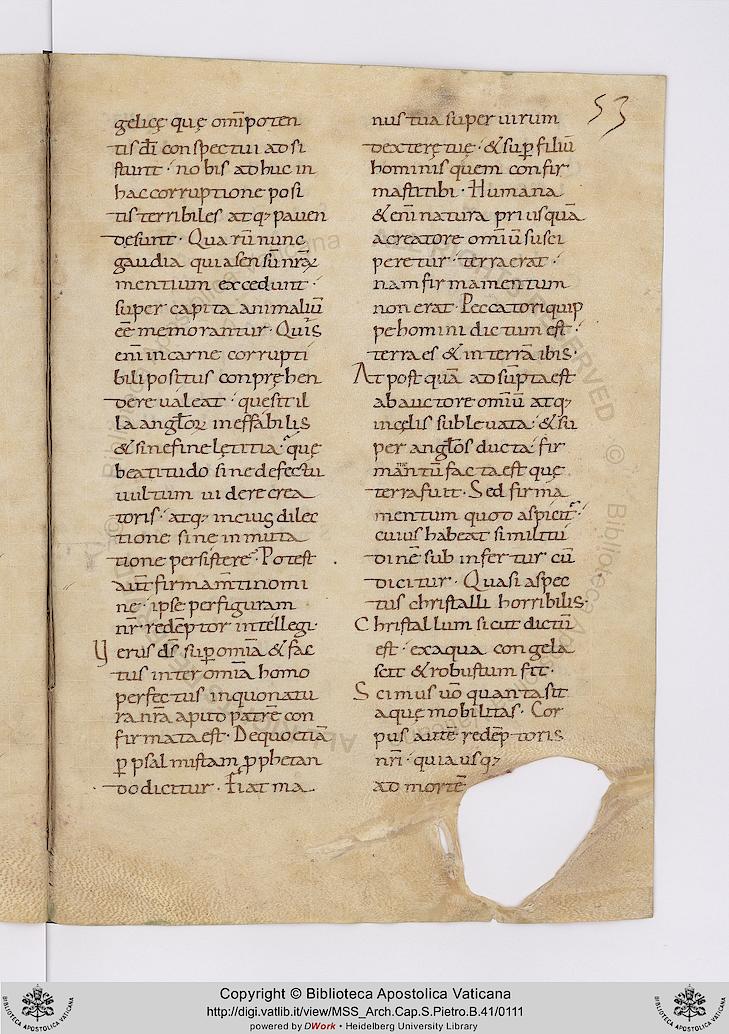 53
gelicę quę om̄ipoten
tis dī conspectui adsi
stunt · nobis adhuc in
hac corruptione posi
tis terribiles atq; pauen
desunt · Quarū nunc
gaudia quia sensū nr̄ę
mentium excedunt ·
super capita animaliū
eē memorantur · Quis
enī in carne corrupti
bili positus conpręhen
dere ualeat · quę sit il
la anglōꝝ ineffabilis
& sine fine lętitia · quę
beatitudo sine defectu
uultum uidere crea
toris · atq; in eius dilec
tione sine inmuta
tione persistere · Potest
aūt firmam̄ti nomi
ne · ipse per figuram
nr̄ · redēptor intellegi ·
Verus ds̄ sup̄ omīa & fac
tus inter omīa homo
perfectus in quo natu
ra nr̄a aput patrē con
firmata est · De quo etiā
ꝑ psalmistam ꝓphetan
do dicitur · Fiat ma
nus tua super uirum
dexterę tuę · & sup̄ filiū
hominis quem confir
masti tibi · Humana
& enī natura priusquā
a creatore omīū susci
peretur · terra erat ·
nam firmamentum
non erat · Peccatori quip
pe homini dictum est ·
terra es & in terrā ibis ·
At post quā adsūpta est
ab auctore omīū atq;
in cęlis subleuata · & su
per anglōs ducta · fir
mam̄tū facta est quę
terra fuit · Sed firma
mentum quod aspicit ·
cuius habeat similitu
dinē subinfertur cū
dicitur · Quasi aspec
tus christalli horribilis ·
Christallum sicut dictū
est · ex aqua congela
scit & robustum fit ·
Scimus uō quanta sit
aquę mobilitas · Cor
pus autē redēptoris
nr̄i · quia usq;
ad mortē
Copyright © Biblioteca Apostolica Vaticana
http://digi.vatlib.it/view/MSS_Arch.Cap.S.Pietro.B.41/0111
powered by DWork • Heidelberg University Library
BIBLIOTECA APOSTOLICA VATICANA
BIBLIOTECA APOSTOLICA VATICANA